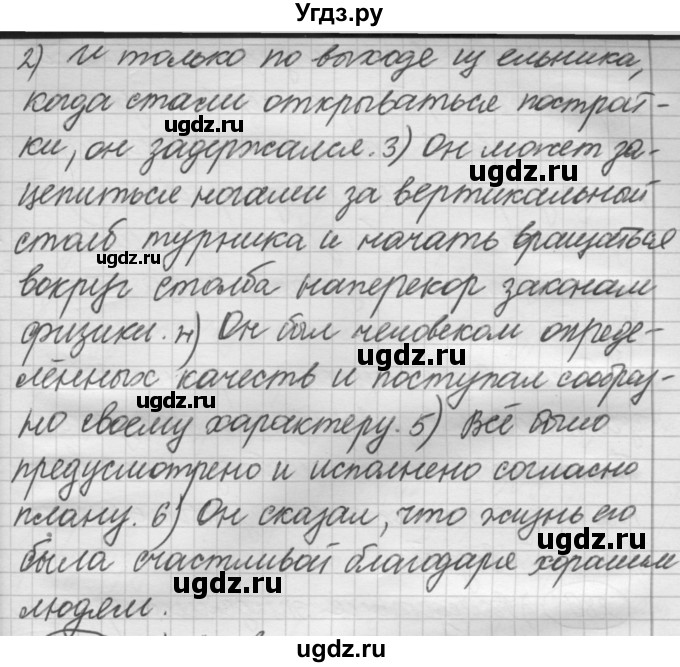 Угдз.ру
2) И только по выходе из ельника,
когда стали открываться построй-
ки, он задержался. 3) Он может за-
цепиться ногами за вертикальной
столб турника и начать вращаться
вокруг столба наперекор законам
физики. 4) Он был человеком опреде-
лённых качеств и поступал сообраз-
но своему характеру. 5) Всё было
предусмотрено и исполнено согласно
плану. 6) Он сказал, что жизнь его
была счастливой благодаря хорошим
людям.
ugdz.ru
ugdz.ru
ugdz.ru
ugdz.ru
ugdz.ru
ugdz.ru
ugdz.ru
ugdz.ru
ugdz.ru
ugdz.ru
ugdz.ru